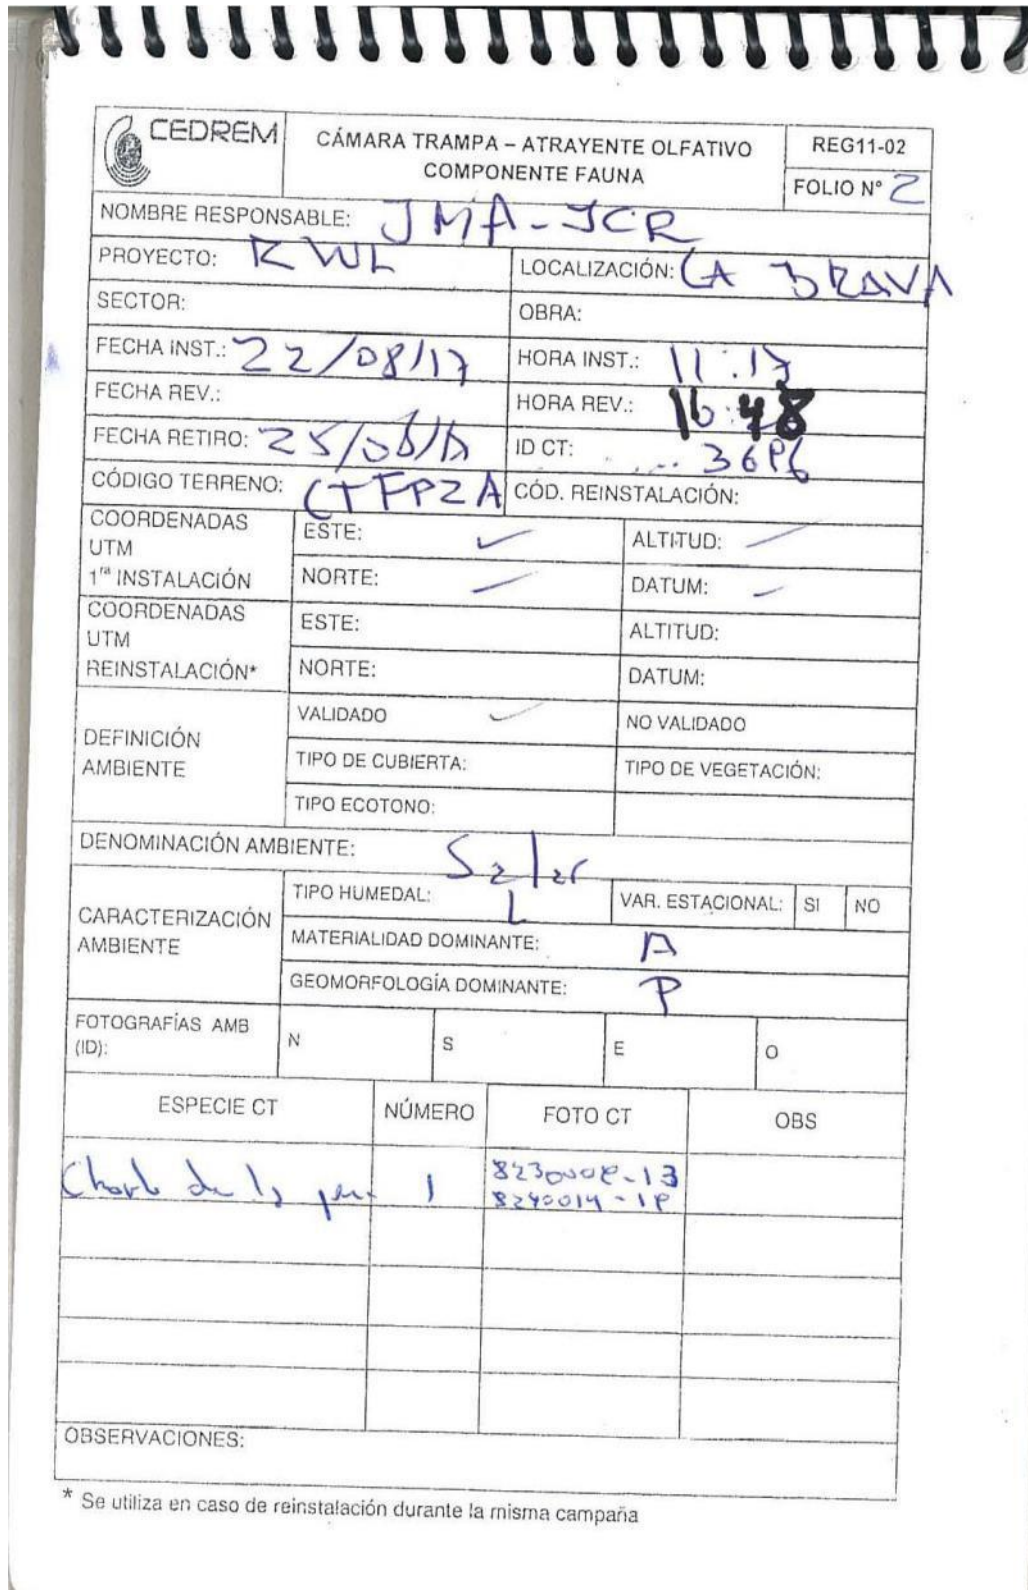 CEDREM
CÁMARA TRAMPA – ATRAYENTE OLFATIVO
COMPONENTE FAUNA
REG11-02
FOLIO N° 2
NOMBRE RESPONSABLE: JMA-JCR
PROYECTO: RWL
LOCALIZACIÓN: LA BRAVA
SECTOR:
OBRA:
FECHA INST.: 22/08/17
HORA INST.: 11:17
FECHA REV.:
HORA REV.: 16:48
FECHA RETIRO: 25/08/17
ID CT:
CÓDIGO TERRENO: CTFP2A
CÓD. REINSTALACIÓN:
COORDENADAS
UTM
1ra INSTALACIÓN
ESTE: ✓
ALTITUD:
NORTE:
DATUM:
COORDENADAS
UTM
REINSTALACIÓN*
ESTE:
ALTITUD:
NORTE:
DATUM:
DEFINICIÓN
AMBIENTE
VALIDADO ✓
NO VALIDADO
TIPO DE CUBIERTA:
TIPO DE VEGETACIÓN:
TIPO ECOTONO:
DENOMINACIÓN AMBIENTE: Salar
CARACTERIZACIÓN
AMBIENTE
TIPO HUMEDAL: L
VAR. ESTACIONAL: SI NO
MATERIALIDAD DOMINANTE: A
GEOMORFOLOGÍA DOMINANTE: P
FOTOGRAFÍAS AMB
(ID):
N S E O
ESPECIE CT NÚMERO FOTO CT OBS
de la 1
OBSERVACIONES:
* Se utiliza en caso de reinstalación durante la misma campaña